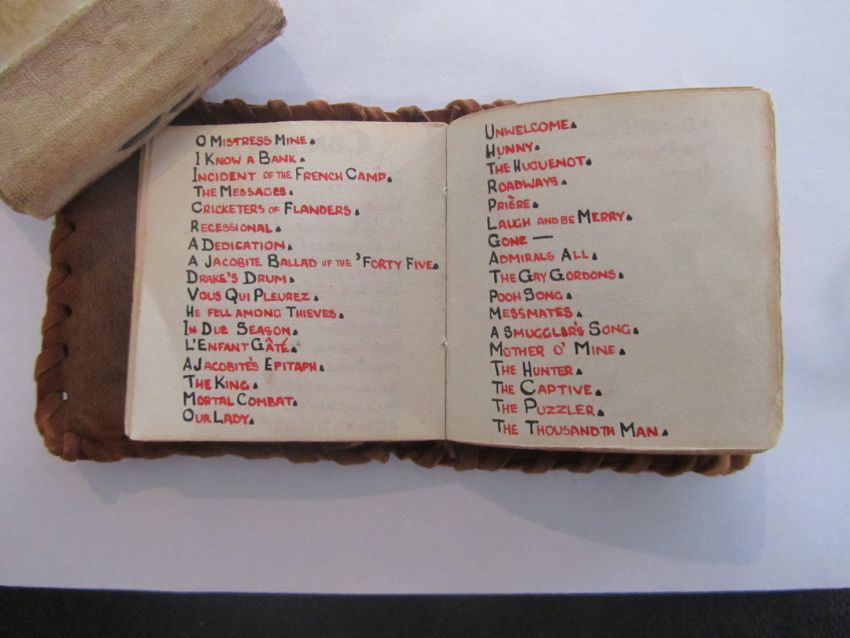 O MISTRESS MINE.
I KNOW A BANK.
INCIDENT OF THE FRENCH CAMP.
THE MESSAGES.
CRICKETERS OF FLANDERS.
RECESSIONAL.
A DEDICATION.
A JACOBITE BALLAD OF THE 'FORTY FIVE.
DRAKE'S DRUM.
VOUS QUI PLEUREZ.
HE FELL AMONG THIEVES.
IN DUE SEASON.
L'ENFANT GÂTÉ.
A JACOBITE'S EPITAPH.
THE KING.
MORTAL COMBAT.
OUR LADY.
UNWELCOME.
HUNNY.
THE HUGUENOT.
ROADWAYS.
PRIÈRE.
LAUGH AND BE MERRY.
GONE —
ADMIRALS ALL.
THE GAY GORDONS.
POOH SONG.
MESSMATES.
A SMUGGLER'S SONG.
MOTHER O' MINE.
THE HUNTER.
THE CAPTIVE.
THE PUZZLER.
THE THOUSANDTH MAN.